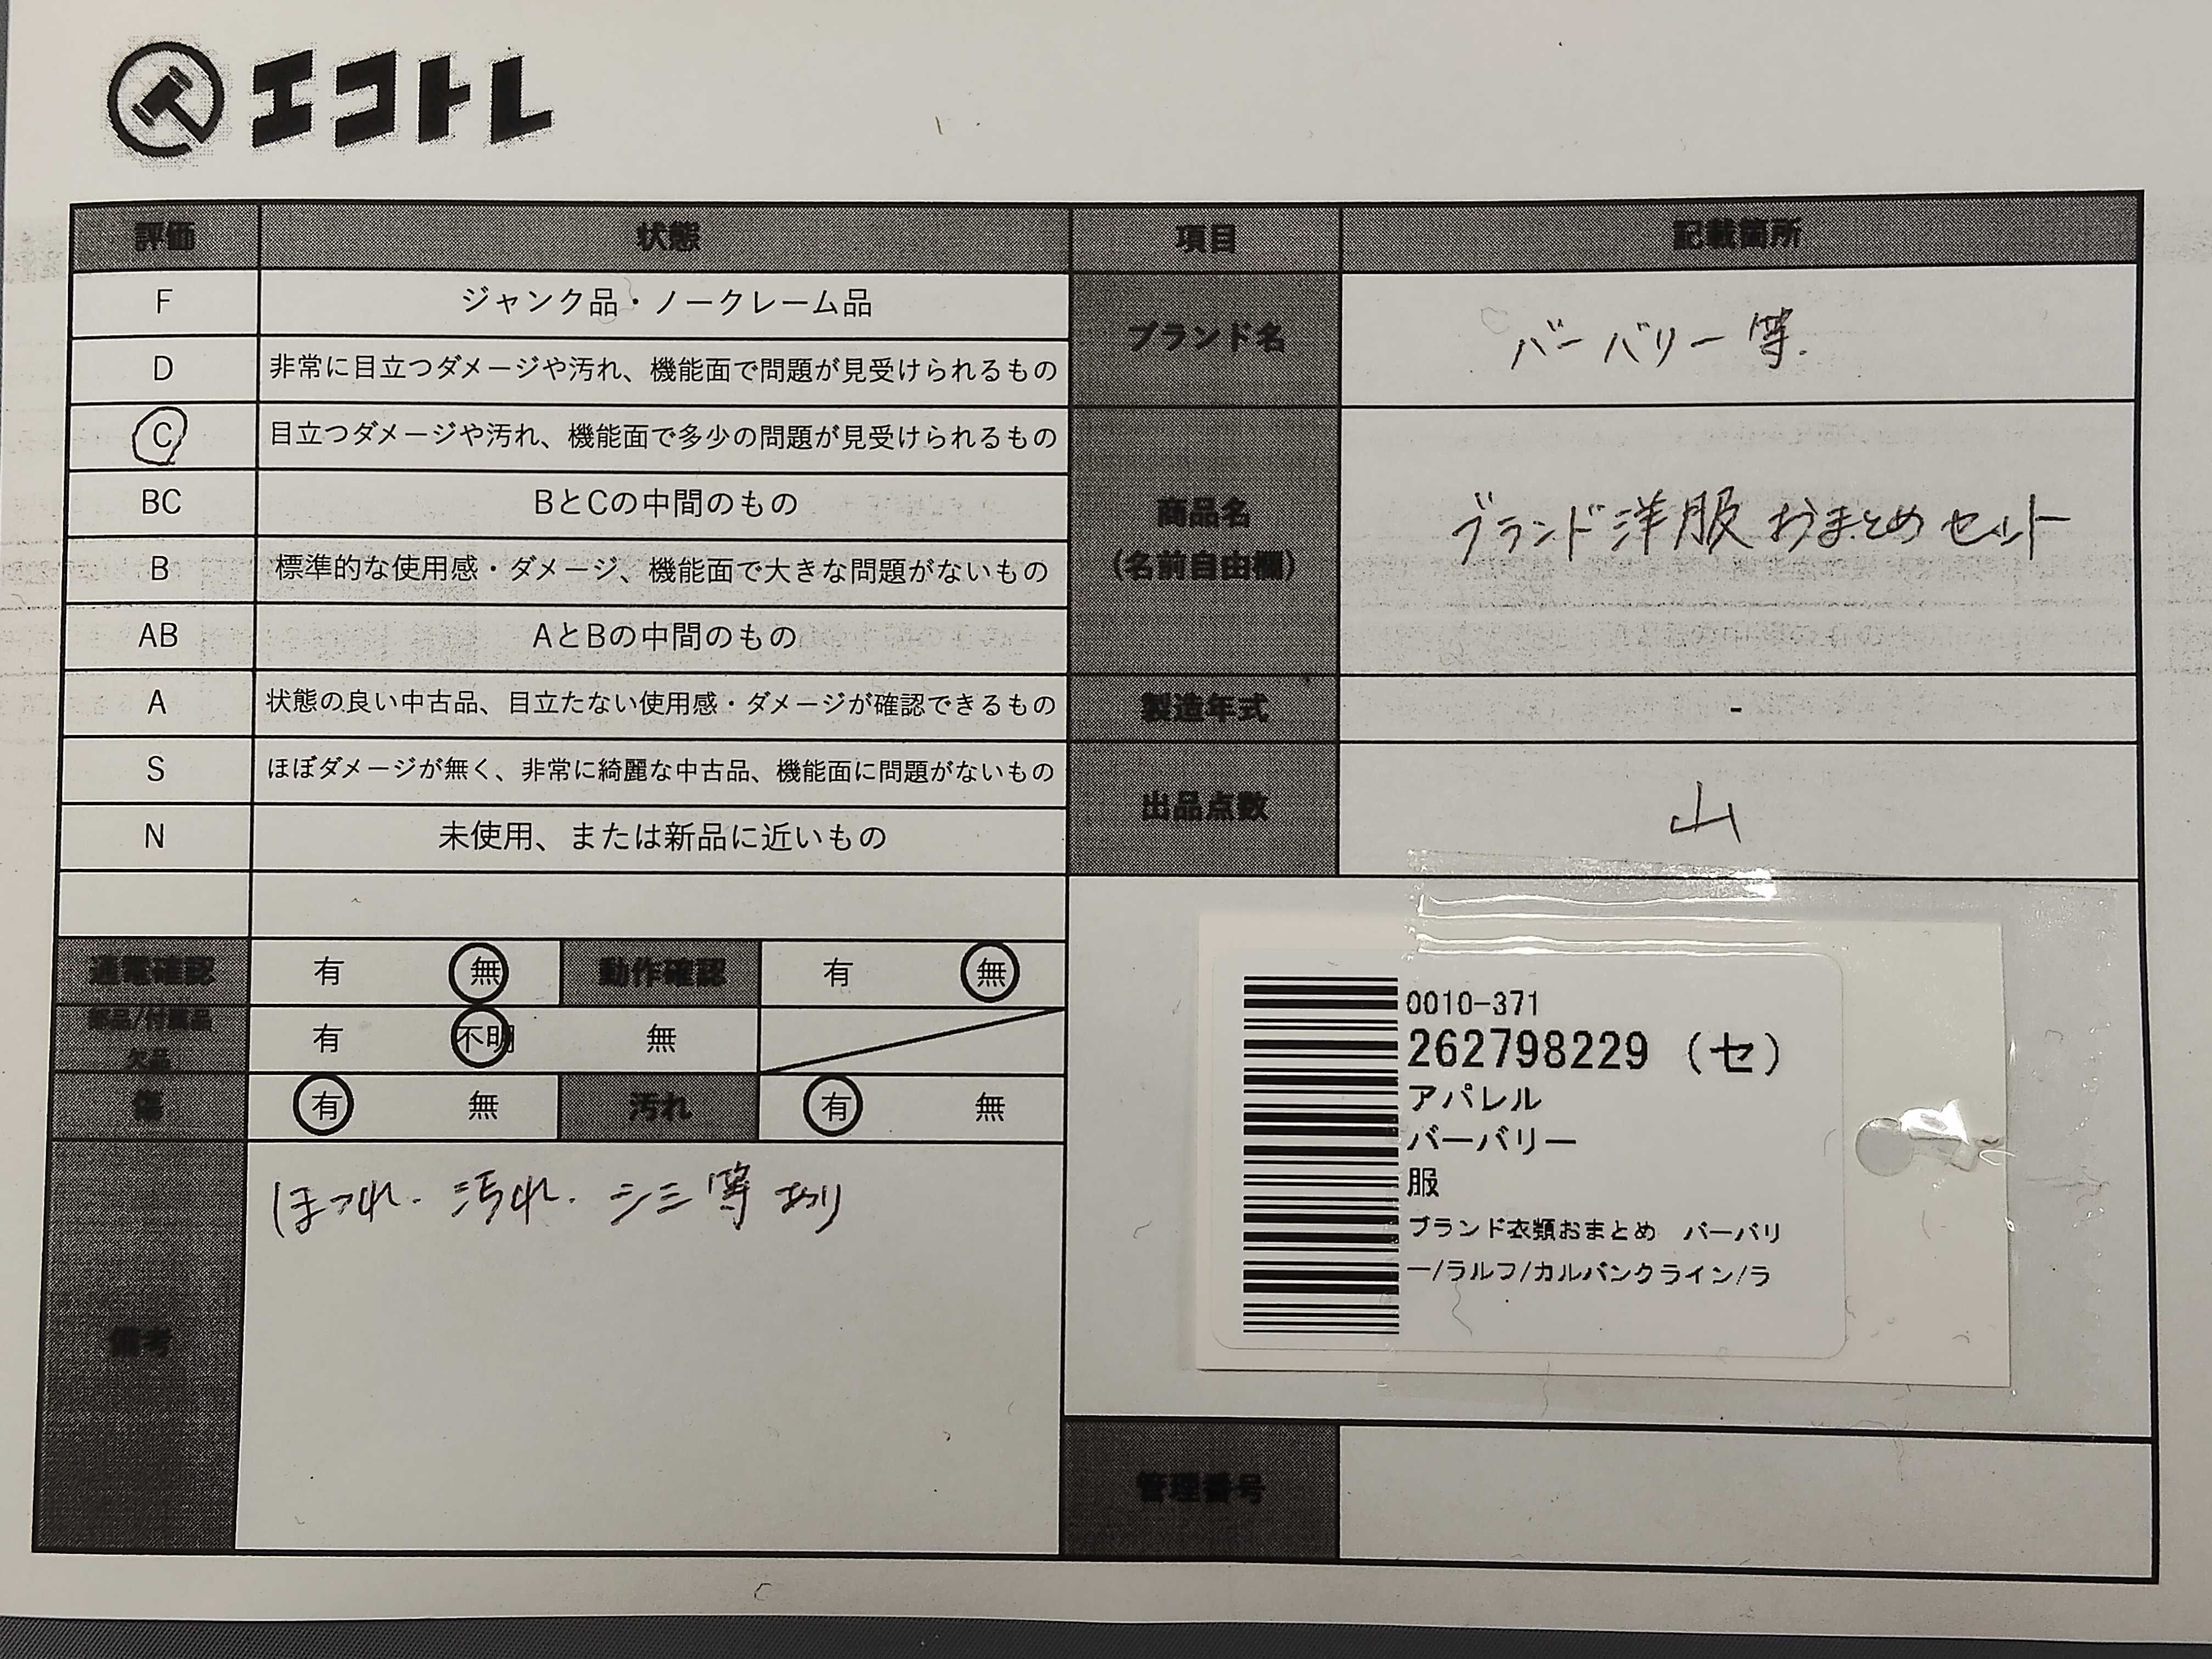 エコトレ
評価 状態 項目 記載箇所
F ジャンク品・ノークレーム品
D 非常に目立つダメージや汚れ、機能面で問題が見受けられるもの
C 目立つダメージや汚れ、機能面で多少の問題が見受けられるもの
BC BとCの中間のもの
B 標準的な使用感・ダメージ、機能面で大きな問題がないもの
AB AとBの中間のもの
A 状態の良い中古品、目立たない使用感・ダメージが確認できるもの
S ほぼダメージが無く、非常に綺麗な中古品、機能面に問題がないもの
N 未使用、または新品に近いもの
ブランド名 バーバリー等.
商品名
(名前自由欄)
ブランド洋服おまとめセット
製造年式 -
出品点数 山
通電確認 有 無 動作確認 有 無
部品/付属品
欠品
有 不明 無
傷 有 無 汚れ 有 無
備考
ほつれ. 汚れ. シミ等あり
0010-371
262798229 (セ)
アパレル
バーバリー
服
ブランド衣類おまとめ バーバリ
ー/ラルフ/カルバンクライン/ラ
管理番号